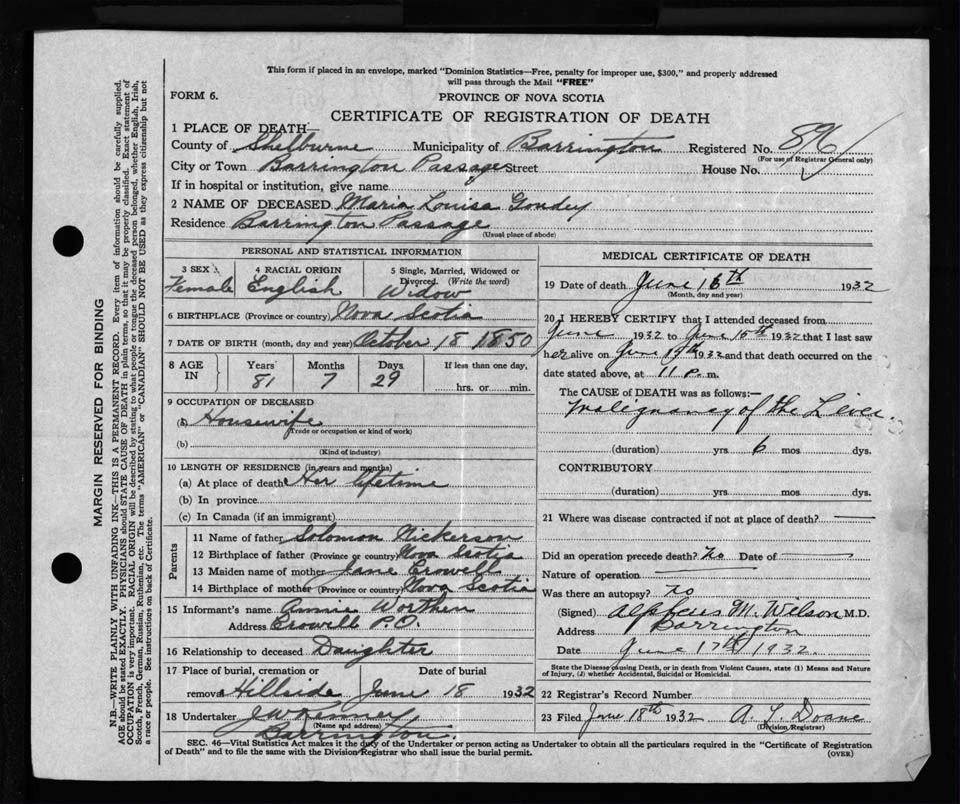 This form if placed in an envelope, marked "Dominion Statistics—Free, penalty for improper use, $300," and properly addressed
will pass through the Mail "FREE"
FORM 6.
PROVINCE OF NOVA SCOTIA
CERTIFICATE OF REGISTRATION OF DEATH
1 PLACE OF DEATH
County of Shelburne Municipality of Barrington Registered No. 896
(For use of Registrar General only)
City or Town Barrington Passage Street House No.
If in hospital or institution, give name
2 NAME OF DECEASED Maria Louisa Goudey
Residence Barrington Passage
(Usual place of abode)
PERSONAL AND STATISTICAL INFORMATION
3 SEX Female
4 RACIAL ORIGIN English
5 Single, Married, Widowed or Divorced. (Write the word) Widow
6 BIRTHPLACE (Province or country) Nova Scotia
7 DATE OF BIRTH (month, day and year) October 18 1850
8 AGE IN Years 81 Months 7 Days 29 If less than one day, hrs. or min.
9 OCCUPATION OF DECEASED
(a) Housewife
(Trade or occupation or kind of work)
(b)
(Kind of industry)
10 LENGTH OF RESIDENCE (in years and months)
(a) At place of death Her lifetime
(b) In province
(c) In Canada (if an immigrant)
Parents
11 Name of father Solomon Nickerson
12 Birthplace of father (Province or country) Nova Scotia
13 Maiden name of mother Jane Crowell
14 Birthplace of mother (Province or country) Nova Scotia
15 Informant's name Annie Worthen
Address Crowell P.O.
16 Relationship to deceased Daughter
17 Place of burial, cremation or Date of burial
removal Hillside June 18 1932
18 Undertaker J W Kenney
(Name and address)
Barrington.
MEDICAL CERTIFICATE OF DEATH
19 Date of death June 16th 1932
(Month, day and year)
20 I HEREBY CERTIFY that I attended deceased from
June 1932 to June 15th 1932 that I last saw
her alive on June 1932 and that death occurred on the
date stated above, at 11 P. m.
The CAUSE OF DEATH was as follows:—
Malignancy of the Liver.
(duration) yrs 6 mos dys.
CONTRIBUTORY
(duration) yrs mos dys.
21 Where was disease contracted if not at place of death?
Did an operation precede death? No Date of
Nature of operation
Was there an autopsy? No
(Signed) Alpheus M. Wilson M.D.
Address Barrington
Date June 17th 1932.
State the Disease causing Death, or in death from Violent Causes, state (1) Means and Nature
of Injury, (2) whether Accidental, Suicidal or Homicidal.
22 Registrar's Record Number
23 Filed June 18th 1932 A. L. Doane
(Division Registrar)
SEC. 46—Vital Statistics Act makes it the duty of the Undertaker or person acting as Undertaker to obtain all the particulars required in the "Certificate of Registration
of Death" and to file the same with the Division Registrar who shall issue the burial permit.
(OVER)
MARGIN RESERVED FOR BINDING
N.B.—WRITE PLAINLY WITH UNFADING INK—THIS IS A PERMANENT RECORD. Every item of information should be carefully supplied.
AGE should be stated EXACTLY. PHYSICIANS should STATE CAUSE OF DEATH in plain terms, so that it may be properly classified. Exact statement of
OCCUPATION is very important. RACIAL ORIGIN will be described by stating to what people or tongue the deceased person belonged, whether English, Irish,
Scotch, French, German, Russian, Ruthenian, etc. The terms "AMERICAN" or "CANADIAN" SHOULD NOT BE USED as they express citizenship but not
a race or people. See instructions on back of Certificate.